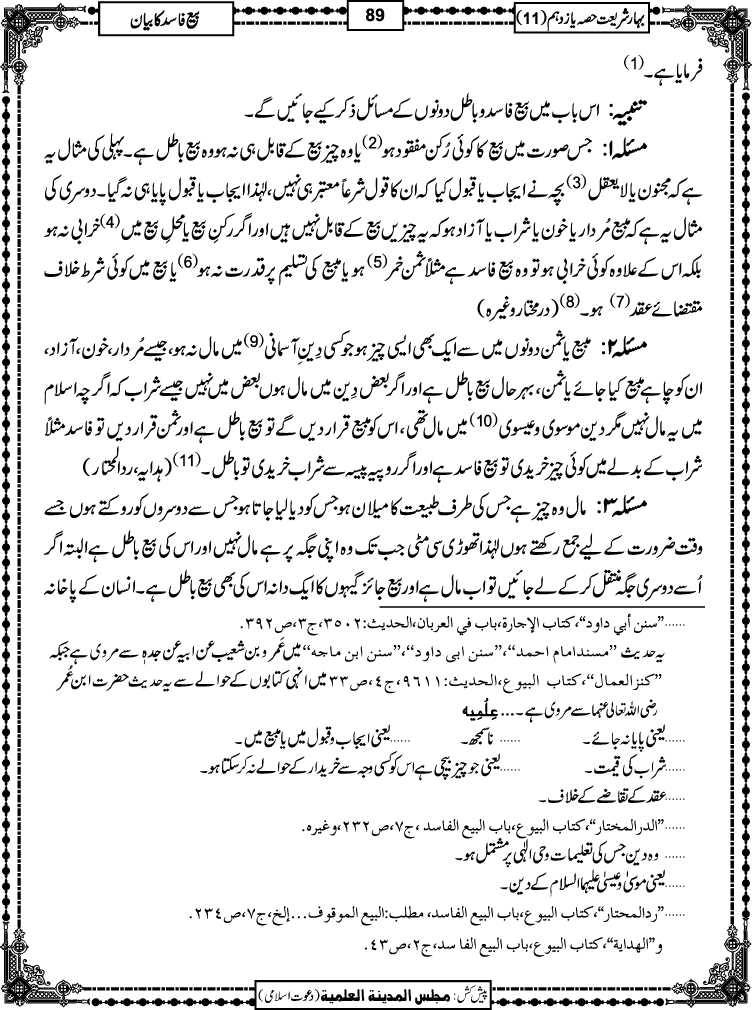 بہارشریعت حصہ یازدہم (11)
89
بیع فاسد کا بیان
فرمایا ہے۔(1)
تنبیہ: اس باب میں بیع فاسد و باطل دونوں کے مسائل ذکر کیے جائیں گے۔
مسئلہ ۱: جس صورت میں بیع کا کوئی رُکن مفقود ہو(2) یا وہ چیز بیع کے قابل ہی نہ ہو وہ بیع باطل ہے۔ پہلی کی مثال یہ
ہے کہ مجنون یا لا یعقل(3) بچہ نے ایجاب یا قبول کیا کہ ان کا قول شرعاً معتبر ہی نہیں، لہٰذا ایجاب یا قبول پایا ہی نہ گیا۔ دوسری کی
مثال یہ ہے کہ مبیع مُردار یا خون یا شراب یا آزاد ہو کہ یہ چیزیں بیع کے قابل نہیں ہیں اور اگر رکنِ بیع یا محلِ بیع میں(4) خرابی نہ ہو
بلکہ اس کے علاوہ کوئی خرابی ہو تو وہ بیع فاسد ہے مثلاً ثمن خمر(5) ہو یا مبیع کی تسلیم پر قدرت نہ ہو(6) یا بیع میں کوئی شرط خلاف
مقتضائے عقد(7) ہو۔(8) (درمختار وغیرہ)
مسئلہ ۲: مبیع یا ثمن دونوں میں سے ایک بھی ایسی چیز ہو جو کسی دِینِ آسمانی(9) میں مال نہ ہو، جیسے مُردار، خون، آزاد،
ان کو چاہے مبیع کیا جائے یا ثمن، بہرحال بیع باطل ہے اور اگر بعض دِین میں مال ہوں بعض میں نہیں جیسے شراب کہ اگرچہ اسلام
میں یہ مال نہیں مگر دین موسوی و عیسوی(10) میں مال تھی، اس کو مبیع قرار دیں گے تو بیع باطل ہے اور ثمن قرار دیں تو فاسد مثلاً
شراب کے بدلے میں کوئی چیز خریدی تو بیع فاسد ہے اور اگر روپیہ پیسہ سے شراب خریدی تو باطل۔(11) (ہدایہ، ردالمحتار)
مسئلہ ۳: مال وہ چیز ہے جس کی طرف طبیعت کا میلان ہو جس کو دیا لیا جاتا ہو جس سے دوسروں کو روکتے ہوں جسے
وقت ضرورت کے لیے جمع رکھتے ہوں لہٰذا تھوڑی سی مٹی جب تک وہ اپنی جگہ پر ہے مال نہیں اور اس کی بیع باطل ہے البتہ اگر
اُسے دوسری جگہ منتقل کر کے لے جائیں تو اب مال ہے اور بیع جائز گیہوں کا ایک دانہ اس کی بھی بیع باطل ہے۔ انسان کے پاخانہ
......"سنن أبي داود"، كتاب الإجارة، باب في العربان، الحديث: ٣٥٠٢، ج٣، ص٣٩٢.
یہ حدیث "مسند امام احمد"، "سنن ابی داود"، "سنن ابن ماجه" میں عَمر و بن شعیب عن ابیہ عن جدہٖ سے مروی ہے جبکہ
"کنزالعمال"، کتاب البیوع، الحدیث: ٩٦١١، ج٤، ص٣٣ میں انہی کتابوں کے حوالے سے یہ حدیث حضرت ابن عُمر
رضی اللہ تعالیٰ عنہما سے مروی ہے۔... عِلْمِیه
......یعنی پایا نہ جائے۔ ...... ناسمجھ۔ ......یعنی ایجاب و قبول میں یا مبیع میں۔
......شراب کی قیمت۔ ......یعنی جو چیز بیچی ہے اس کو کسی وجہ سے خریدار کے حوالے نہ کر سکتا ہو۔
......عقد کے تقاضے کے خلاف۔
......"الدرالمختار"، كتاب البيوع، باب البيع الفاسد، ج٧، ص٢٣٢، وغيره.
...... وہ دین جس کی تعلیمات وحی الٰہی پر مشتمل ہو۔
......یعنی موسیٰ و عیسیٰ علیہما السلام کے دین۔
......"ردالمحتار"، كتاب البيوع، باب البيع الفاسد، مطلب: البيع الموقوف...إلخ، ج٧، ص٢٣٤.
و"الهداية"، كتاب البيوع، باب البيع الفاسد، ج٢، ص٤٣.
پیش کش: مجلس المدینة العلمیة (دعوتِ اسلامی)